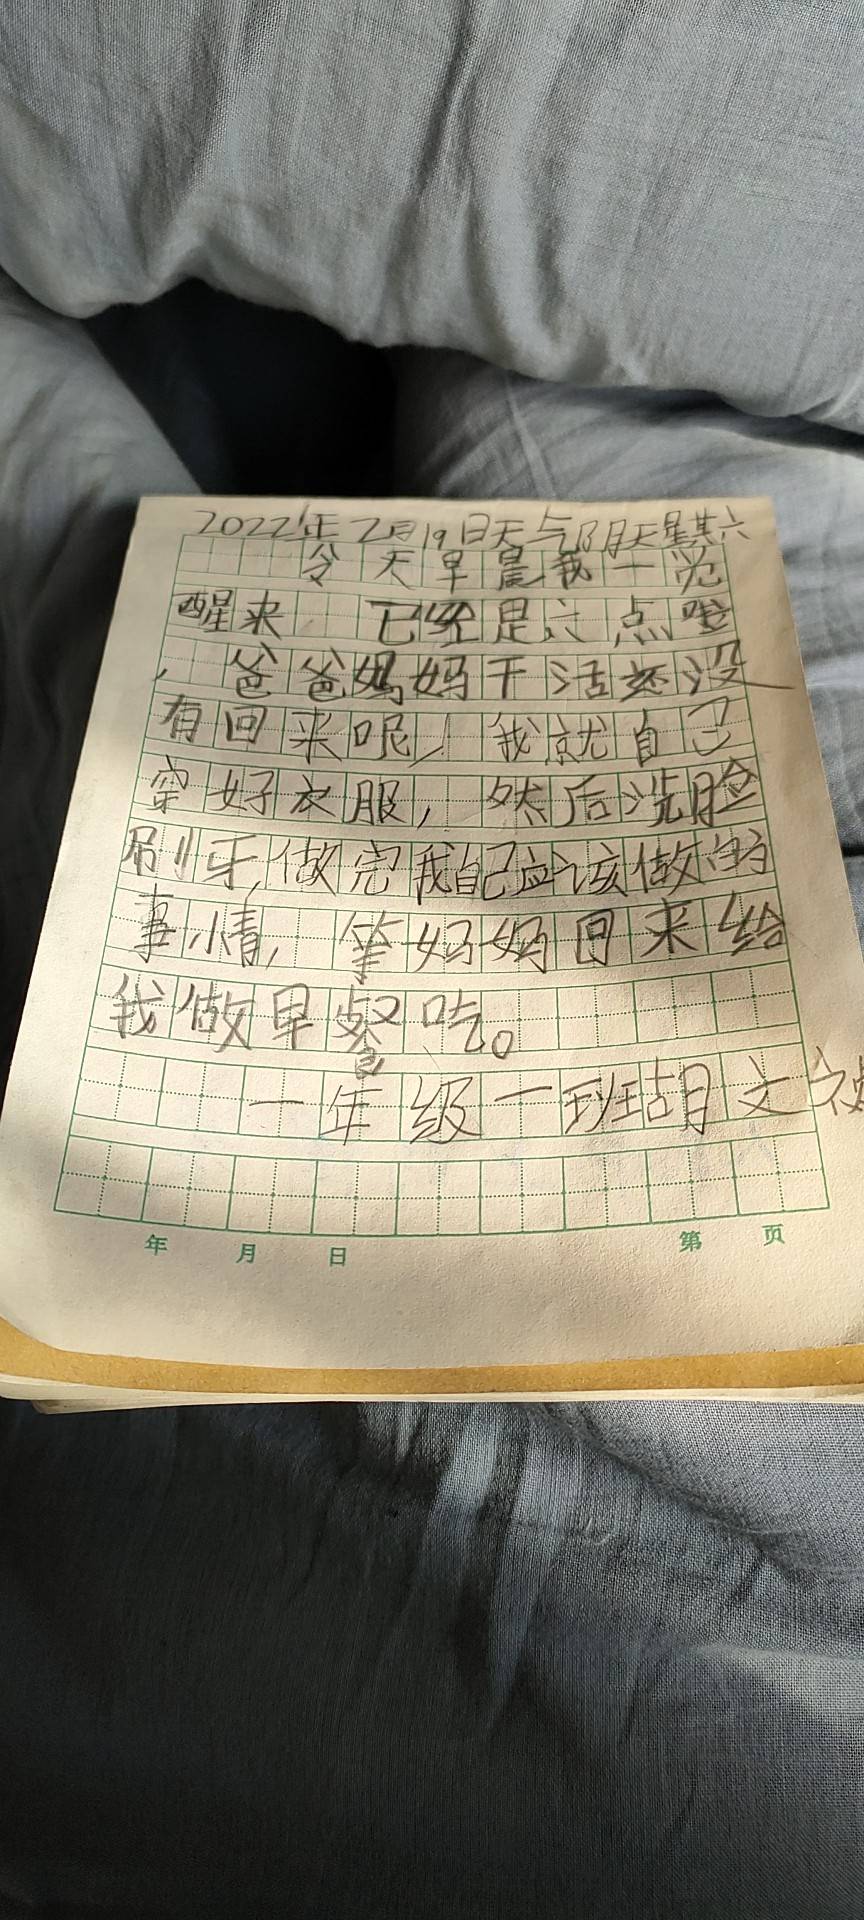 2022年2月19日天气阴天星其六
今天早晨我一觉
醒来 已经是六点啦
，爸爸妈妈干活还没
有回来呢，我就自己
穿好衣服，然后洗脸
刷牙，做完我自己应该做的
事情，等妈妈回来给
我做早餐吃。
一年级一班胡文
年 月 日 第 页